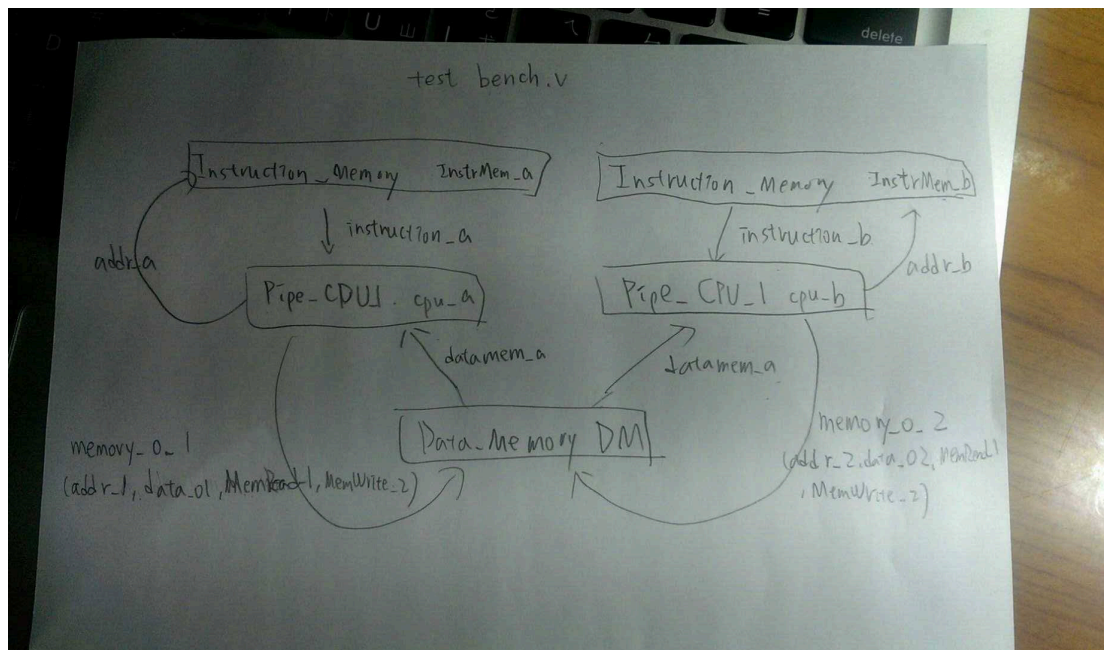 delete
test bench.v
Instruction_Memory InstrMem_a
Instruction_Memory InstrMem_b
instruction_a
instruction_b
addr_a
addr_b
Pipe_CPU1. cpu_a
Pipe_CPU_1 cpu_b
datamem_a
datamem_a
Data_Memory DM
memory_o_1
(addr_1, data_o1, MemRead_1, MemWrite_2)
memory_o_2
(addr_2, data_o2, MemRead_1
, MemWrite_2)